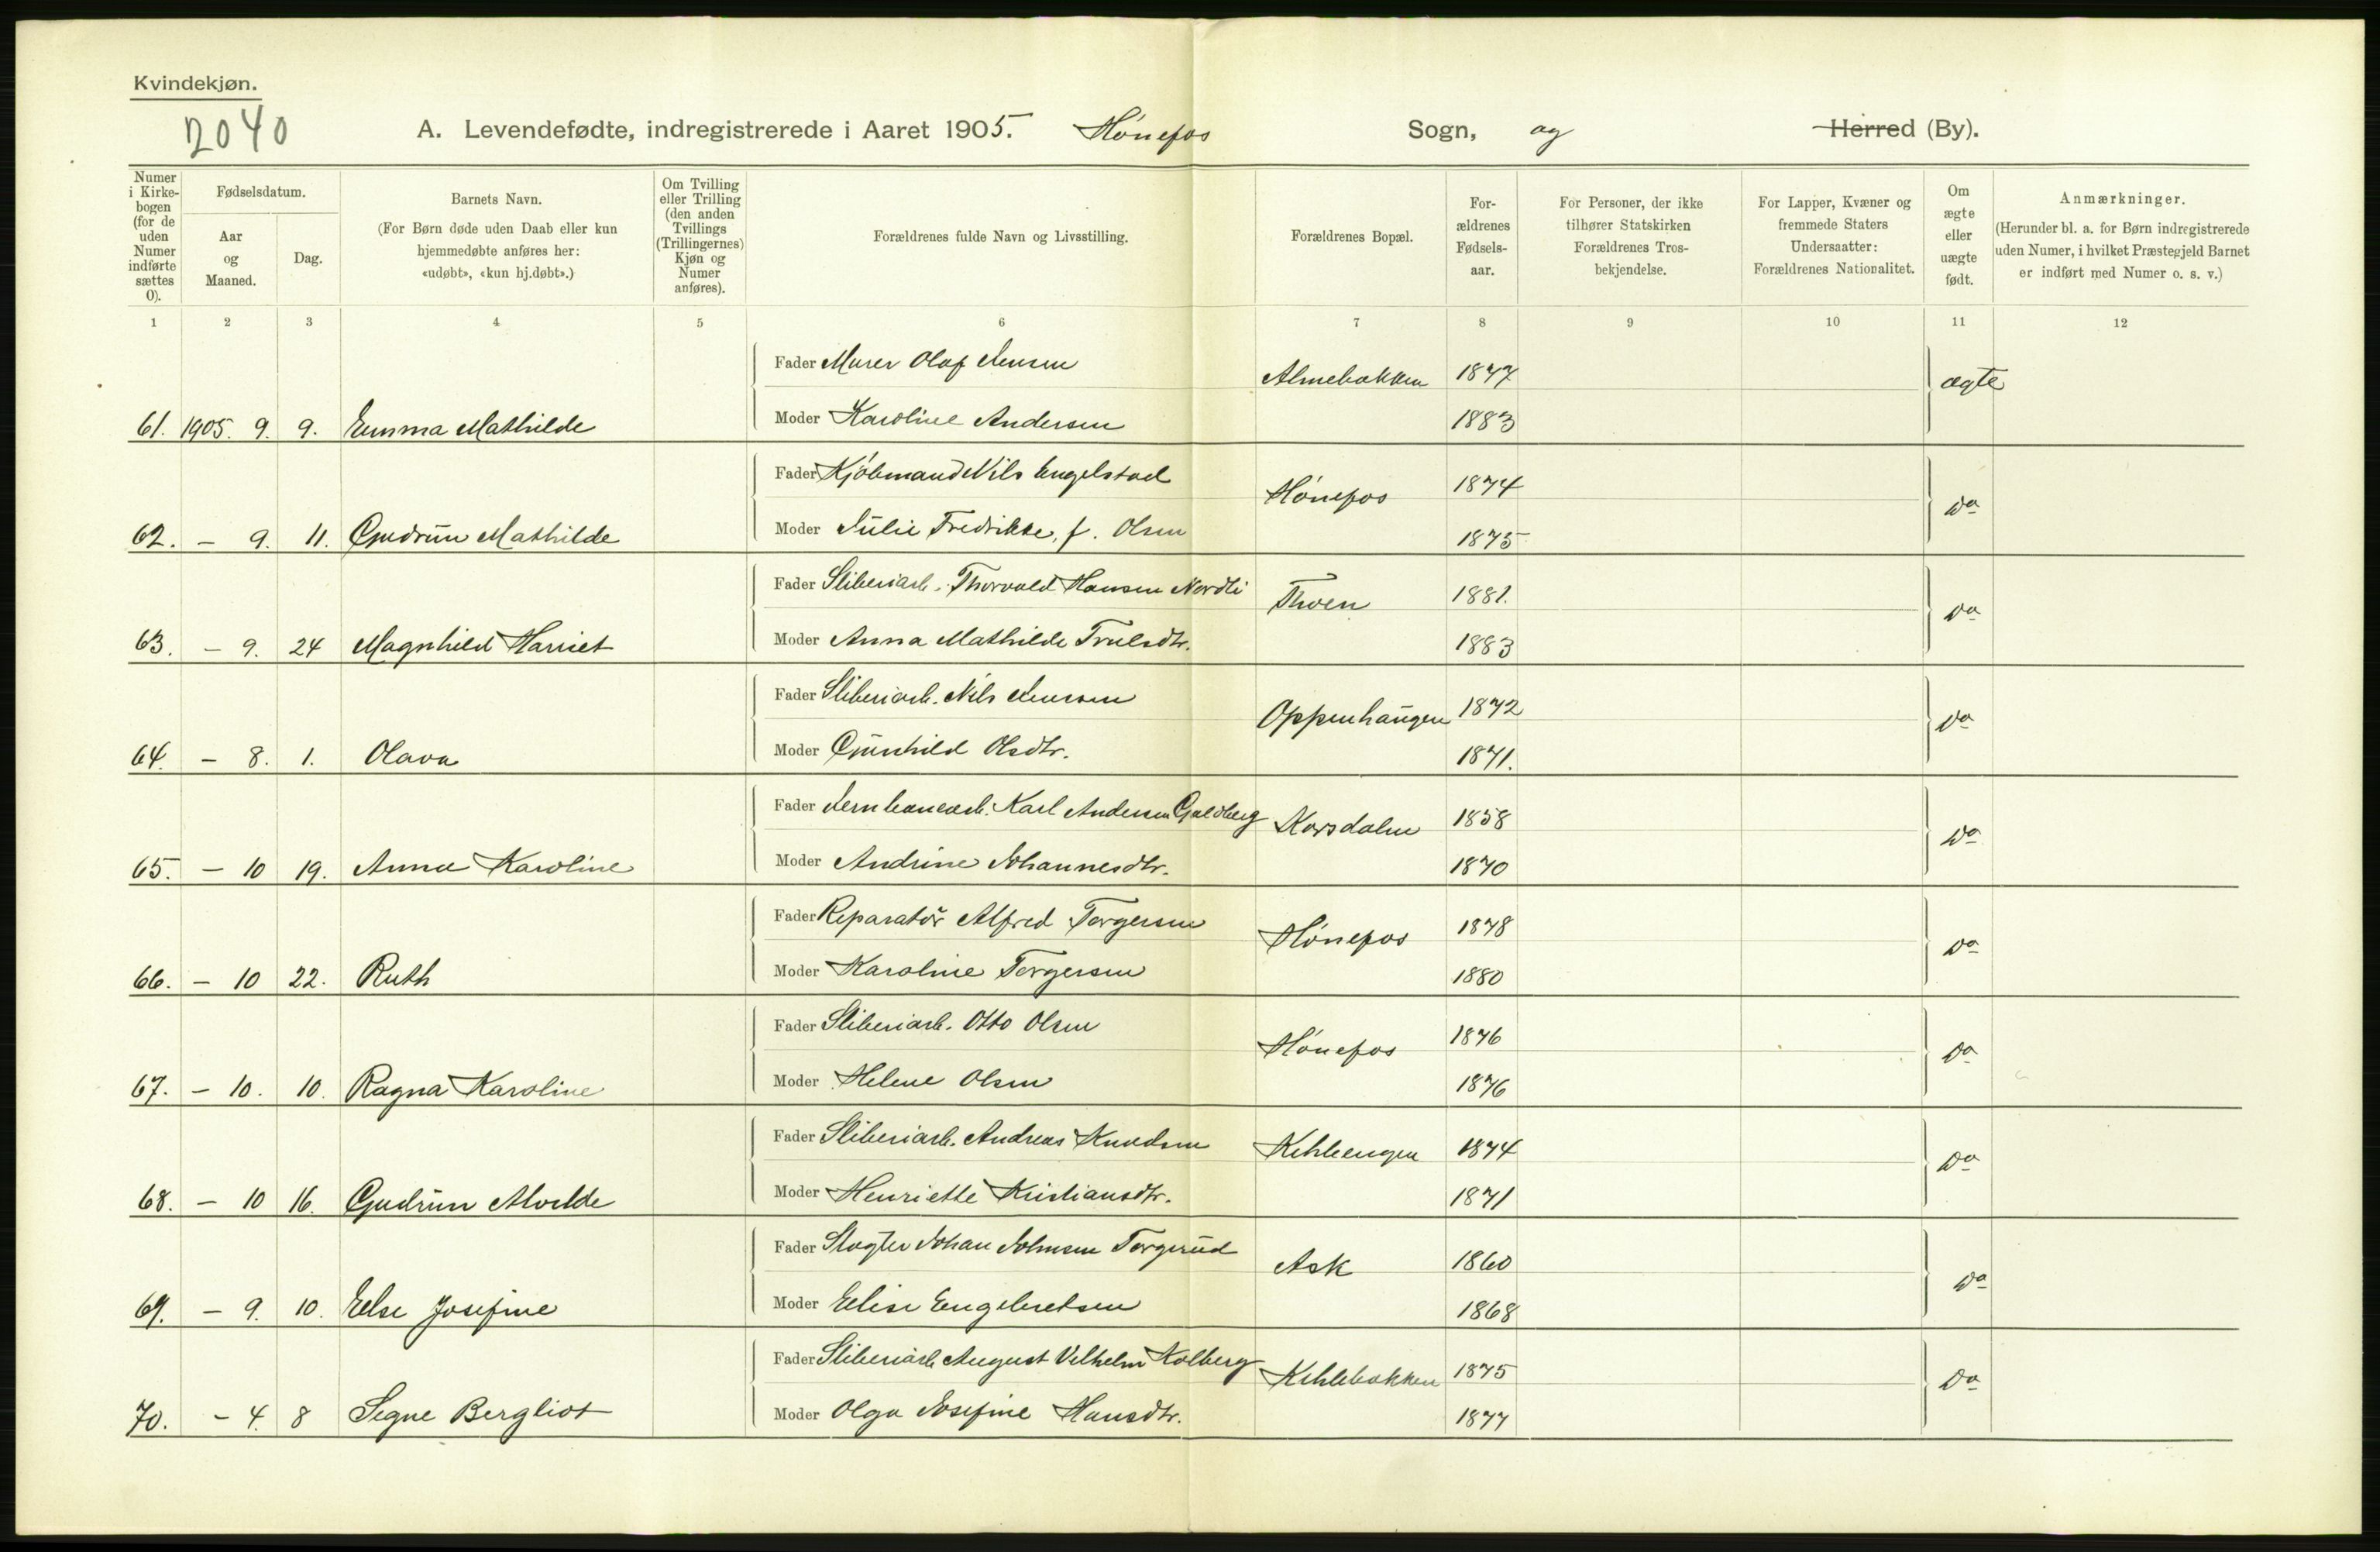 Kvindekjøn.
2040
A. Levendefødte, indregistrerede i Aaret 1905. Hønefos Sogn, og Herred (By).
Numer i Kirkebogen (for de uden Numer indførte sættes 0).
Fødselsdatum.
Aar og Maaned.
Dag.
Barnets Navn.
(For Børn døde uden Daab eller kun hjemmedøbte anføres her: «udøbt», «kun hj.døbt».)
Om Tvilling eller Trilling (den anden Tvillings (Trillingernes) Kjøn og Numer anføres).
Forældrenes fulde Navn og Livsstilling.
Forældrenes Bopæl.
Forældrenes Fødselsaar.
For Personer, der ikke tilhører Statskirken Forældrenes Trosbekjendelse.
For Lapper, Kvæner og fremmede Staters Undersaatter: Forældrenes Nationalitet.
Om ægte eller uægte født.
Anmærkninger.
(Herunder bl. a. for Børn indregistrerede uden Numer, i hvilket Præstegjeld Barnet er indført med Numer o. s. v.)
1 2 3 4 5 6 7 8 9 10 11 12
Fader Murer Olaf Jensen Almebakken 1877 ægte
61. 1905. 9. 9. Emma Mathilde Moder Karoline Andersen 1883
Fader Kjøbmand Nils Engelstad Hønefos 1874 do
62. – 9. 11. Gudrun Mathilde Moder Julie Fredrikke, f. Olsen 1875
Fader Sliberiarb. Thorvald Hansen Nordli Thoen 1881. do
63. – 9. 24 Magnhild Harriet Moder Anna Mathilde Trulsdtr. 1883
Fader Sliberiarb. Nils Iversen Oppenhaugen 1872 do
64. – 8. 1. Olava Moder Gunhild Olsdtr. 1871.
Fader Jernbanearb. Karl Andersen Guldberg Korsdalen 1858 do
65. – 10 19. Anna Karoline Moder Andrine Johannesdtr. 1870
Fader Reparatør Alfred Torgersen Hønefos 1878 do
66. – 10 22. Ruth Moder Karoline Torgersen 1880
Fader Sliberiarb. Otto Olsen Hønefos 1876 do
67. – 10. 10. Ragna Karoline Moder Helene Olsen 1876
Fader Sliberiarb. Andreas Knudsen 1874 do
68. – 10 16. Gudrun Alvilde Moder Henriette Kristiansdtr. 1871
Fader Slagter Johan Johnsen Torgerud Ask 1860 do
69. – 9. 10. Else Josefine Moder Elise Engebretsen 1868
Fader Sliberiarb August Vilhelm Kolberg 1875 do
70. – 4. 8 Signe Bergliot Moder Olga Josefine Hansdtr. 1877